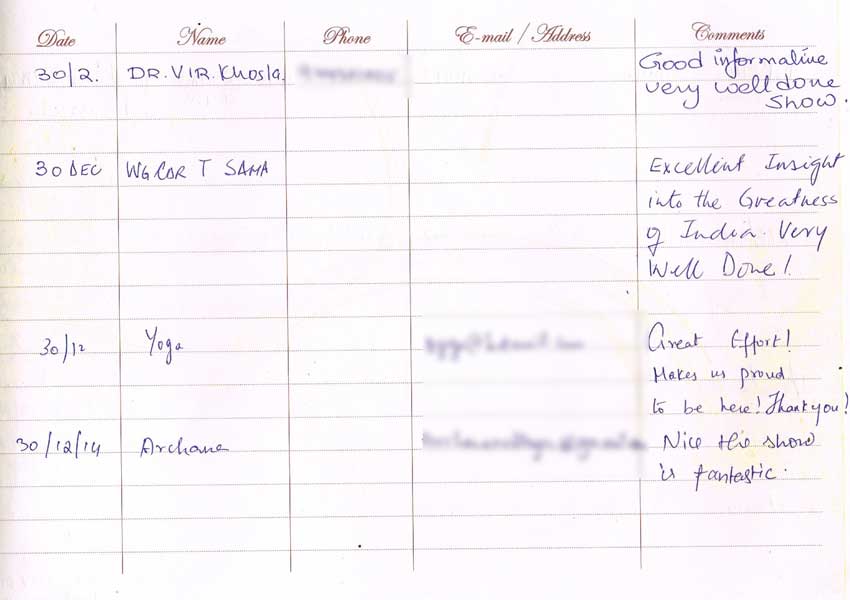 Date Name Phone E-mail / Address Comments
30/2. DR. VIR. Khosla. Good informative
very well done
show.
30 DEC WG CDR T SAMA Excellent Insight
into the Greatness
of India. Very
Well Done!
30/12 Yoga Great Effort!
Makes us proud
to be here! Thank you!
30/12/14 Archana Nice this show
is fantastic.